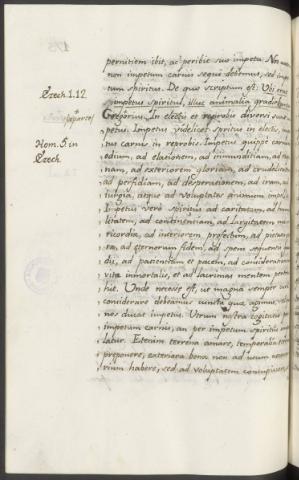 pernitiem ibit, ac peribit suo impetu. Non autem
non impetum carnis sequi debemus, sed impe-
tum spiritus. De quo scriptum est: Ubi erat
Ezech. 1.12.
impetus spiritus, illuc animalia gradieban
Gregorius. In electis et reprobis diversi sunt im-
petus. Impetus videlicet spiritus in electis, impe-
tus carnis in reprobis. Impetus quippe carnis
Hom. 5. in
Ezech.
odium, ad elationem, ad immunditiam, ad rapi-
nam, ad exteriorem gloriam, ad crudelitatem
ad perfidiam, ad desperationem, ad iram, ad
iurgia, atque ad voluptates animum impellit
Impetus verò spiritus ad caritatem, ad humi-
litatem, ad continentiam, ad largitatem mise-
ricordia, ad interiorem profectum, ad pietatis
opera, ad æternorum fidem, ad spem sequentis gau-
dii, ad patientiam et pacem, ad considerationem
vita mortalis, et ad lacrimas mentem pertra-
hit. Unde necesse est, ut magna semper cura
considerare debeamus cuncta quæ agimus, quis
nos ducat impetus. Utrum nostra cogitatio per
impetum carnis, an per impetum spiritus impel-
latur. Etenim terrena amare, temporalia æternis
præponere, exteriora bona non ad usum necessa-
rium habere, sed ad voluptatem concupiscere